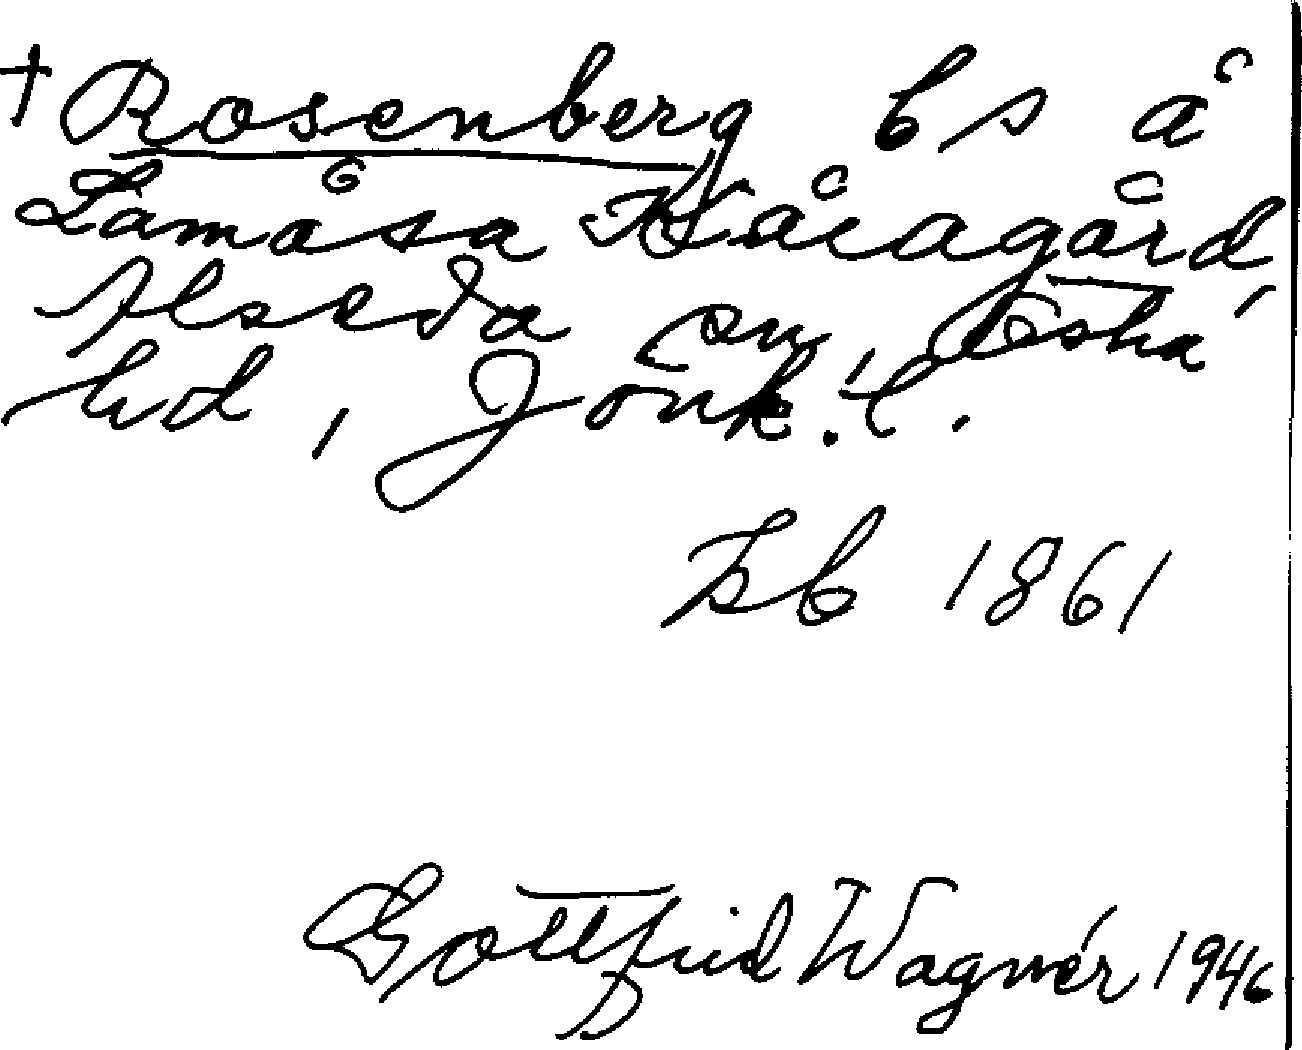 † Rosenberg bs å
Lamåsa Kåragård,
Alseda sn, Östra
hd, Jönk. l.
Kb 1861
Gottfrid Wagnér 1946